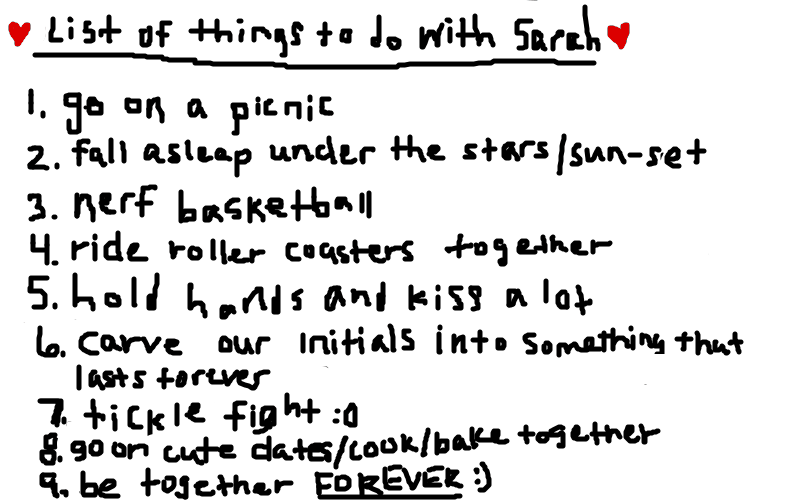 List of things to do with Sarah
1. go on a picnic
2. fall asleap under the stars/sun-set
3. nerf basketball
4. ride roller coasters together
5. hold hands and kiss a lot
6. carve our initials into something that
lasts forever
7. tickle fight :0
8. go on cute dates/cook/bake together
9. be together FOREVER :)